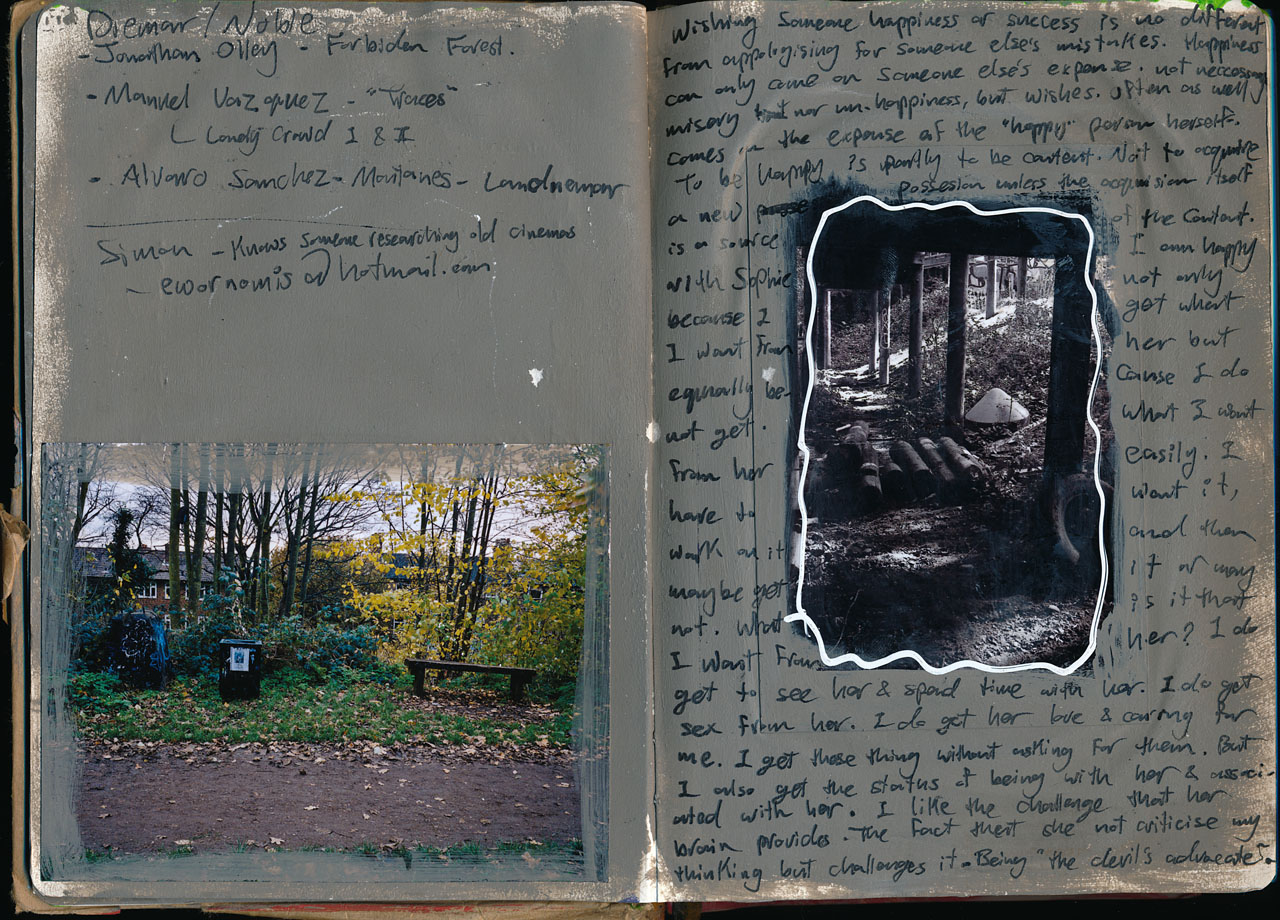 Diemar/Noble
- Jonathan Olley - Forbiden Forest.
- Manuel Vazquez - "Traces"
L Lonely Crowd I & II
- Alvaro Sanchez-Montanes -
Simon - Knows someone researching old cinemas
- ewornomis@hotmail.com
Wishing someone happiness or success is no different
from appologising for someone else's mistakes. Happiness
can only come on someone else's expense. not neccessary
misery nor un-happiness, but wishes. Often as well
comes on the expense of the "happy" person herself.
To be happy is partly to be content. Not to acquire
a new possesion unless the acquision itself
is a source of the Content.
with Sophie I am happy
because I not only
I want from get what
equally be- her but
not get. cause I do
from her what I want
have to easily. I
work on it want it,
maybe get and then
not. What it or may
I want from is it that
her? I do
get to see her & spend time with her. I do get
sex from her. I do get her love & caring for
me. I get those thing without asking for them. But
I also get the status of being with her & associ-
ated with her. I like the challenge that her
brain provides. The fact that she not criticise my
thinking but challenges it - Being "the devil's advocate".